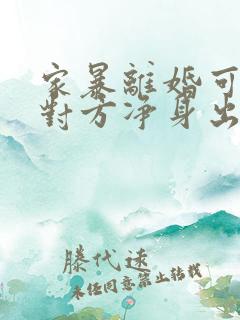 家暴離婚可
對方净身出
滕代遠
未任同意禁止轉載